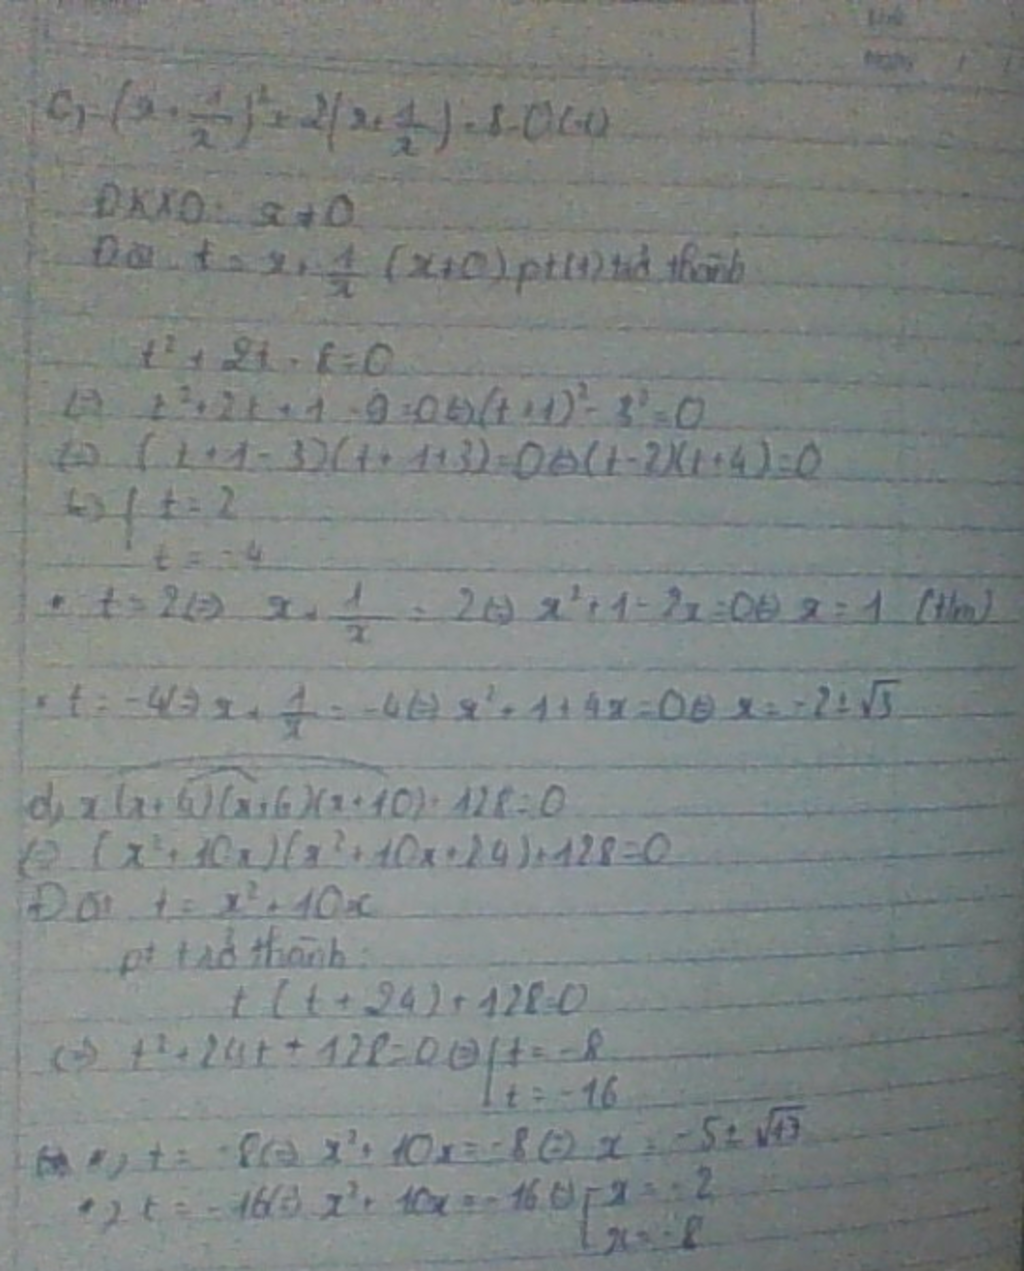 Ngày / /
c, (x + 1/x)² + 2(x + 1/x) - 8 = 0 (1)
ĐKXĐ: x ≠ 0
Đặt t = x + 1/x (x ≠ 0) pt (1) trở thành
t² + 2t - 8 = 0
(=) t² + 2t + 1 - 9 = 0 (=) (t + 1)² - 3² = 0
(=) (t + 1 - 3)(t + 1 + 3) = 0 (=) (t - 2)(t + 4) = 0
(=) [ t = 2
t = -4
* t = 2 (=) x + 1/x = 2 (=) x² + 1 - 2x = 0 (=) x = 1 (thm)
* t = -4 (=) x + 1/x = -4 (=) x² + 1 + 4x = 0 (=) x = -2 ± √3
d, x(x + 4)(x + 6)(x + 10) + 128 = 0
(=) (x² + 10x)(x² + 10x + 24) + 128 = 0
Đặt t = x² + 10x
pt trở thành:
t(t + 24) + 128 = 0
(=) t² + 24t + 128 = 0 (=) [ t = -8
t = -16
*, t = -8 (=) x² + 10x = -8 (=) x = -5 ± √17
*, t = -16 (=) x² + 10x = -16 (=) [ x = -2
x = -8